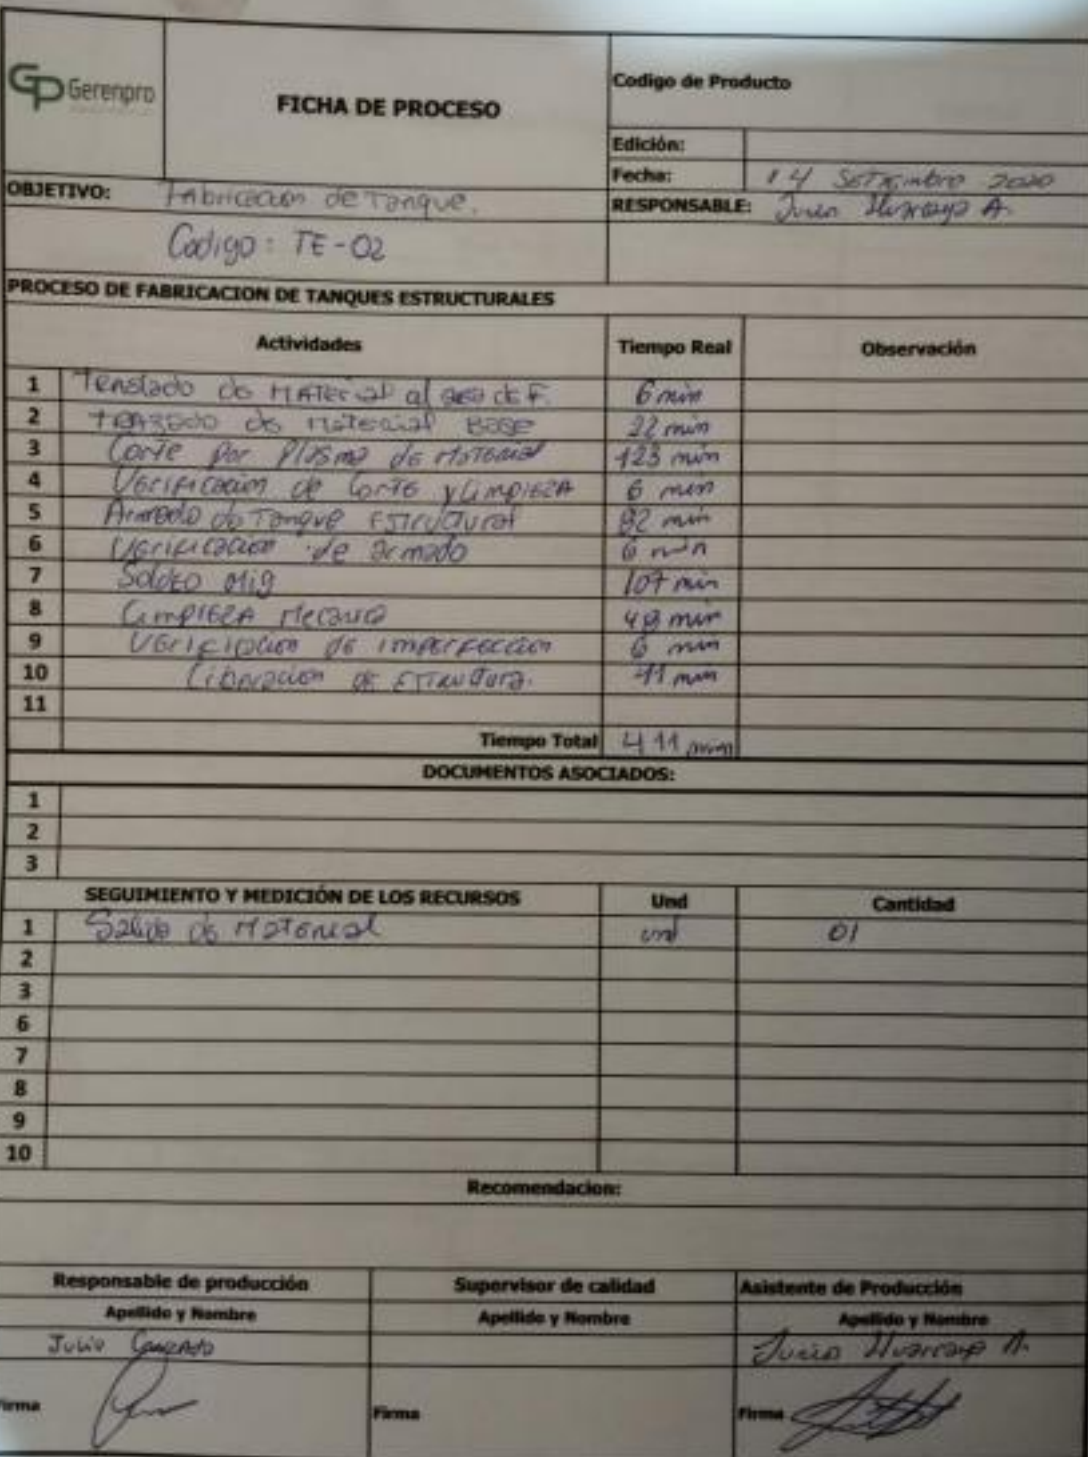 GP Gerenpro
FICHA DE PROCESO
Codigo de Producto
Edición:
Fecha: 14 Setiembre 2020
OBJETIVO: Fabricacion de Tanque.
RESPONSABLE: Huarcaya A.
Codigo: TE-02
PROCESO DE FABRICACION DE TANQUES ESTRUCTURALES
Actividades Tiempo Real Observación
1 Traslado de Material al area de F. 6 min
2 Trazado de Material Base 22 min
3 Corte por Plasma de Material 123 min
4 Verificacion de Corte y Limpieza 6 min
5 Armado de Tanque Estructural 82 min
6 Verificacion de armado 6 min
7 Soldeo Mig 107 min
8 Limpieza Mecanica min
9 Verificacion de imperfeccion 6 min
10 Liberacion de Estructura. 11 min
11
Tiempo Total 411 min
DOCUMENTOS ASOCIADOS:
1
2
3
SEGUIMIENTO Y MEDICIÓN DE LOS RECURSOS Und Cantidad
1 Salida de Material und 01
2
3
6
7
8
9
10
Recomendacion:
Responsable de producción Supervisor de calidad Asistente de Producción
Apellido y Nombre Apellido y Nombre Apellido y Nombre
Julio Huarcaya A.
Firma Firma Firma